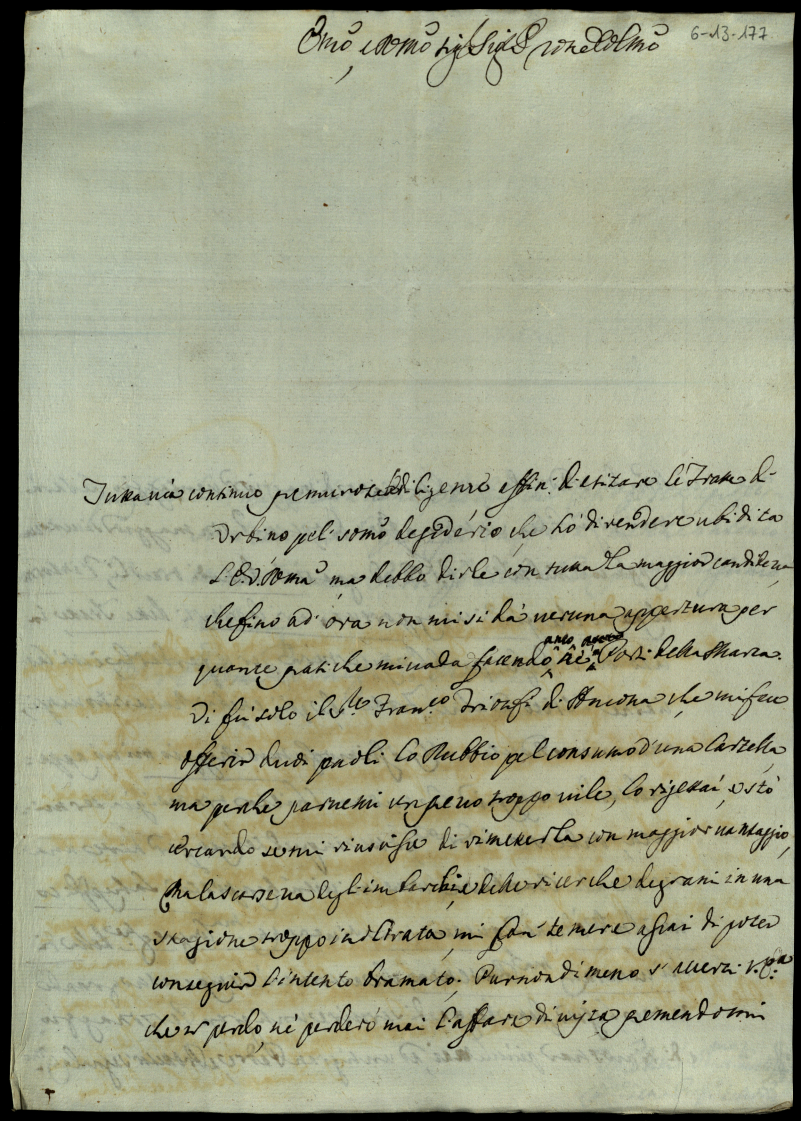 Em̃o, e Rm̃o Sig.r Sig.r P̃rone Col.mo
6-13-177
Tuttavia continuo premurose le diligenze affin: di esitare le Tratte di
Urbino pel som̃o desiderio che hò di rendere ubidita
L'E. V. Rm̃a, ma debbo dirle con tutta la maggior candidezza,
che fino ad' ora non mi si dà veruna appertura per
quante pratiche mi vada facendo anco ne' Porti della Marca.
Vi fù solo il Sr. Fran.co Trionfi di Ancona che mi fece
offerir dudi paoli lo Rubbio pel consumo d'una Carzetta,
ma perche parvemi un prezzo troppo vile, lo rigettai, e stò
cercando se mi riuscisse di rimetterla con maggior vantaggio,
Ma la scarsezza degl'imbarchi, e delle ricerche de grani in una
stagione troppo inoltrata, mi fan' temere assai di poter
conseguir l'intento bramato. Purnondimeno s' accerti V. E.za
che no' perdo, nè perderò mai l'affare di vista premendomi